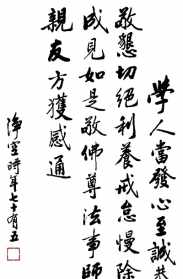 學人當發心至誠恭
敬懇切絕利養戒怠慢除
成見如是敬佛尊法事師
親友方獲感通
淨空時年七十有五